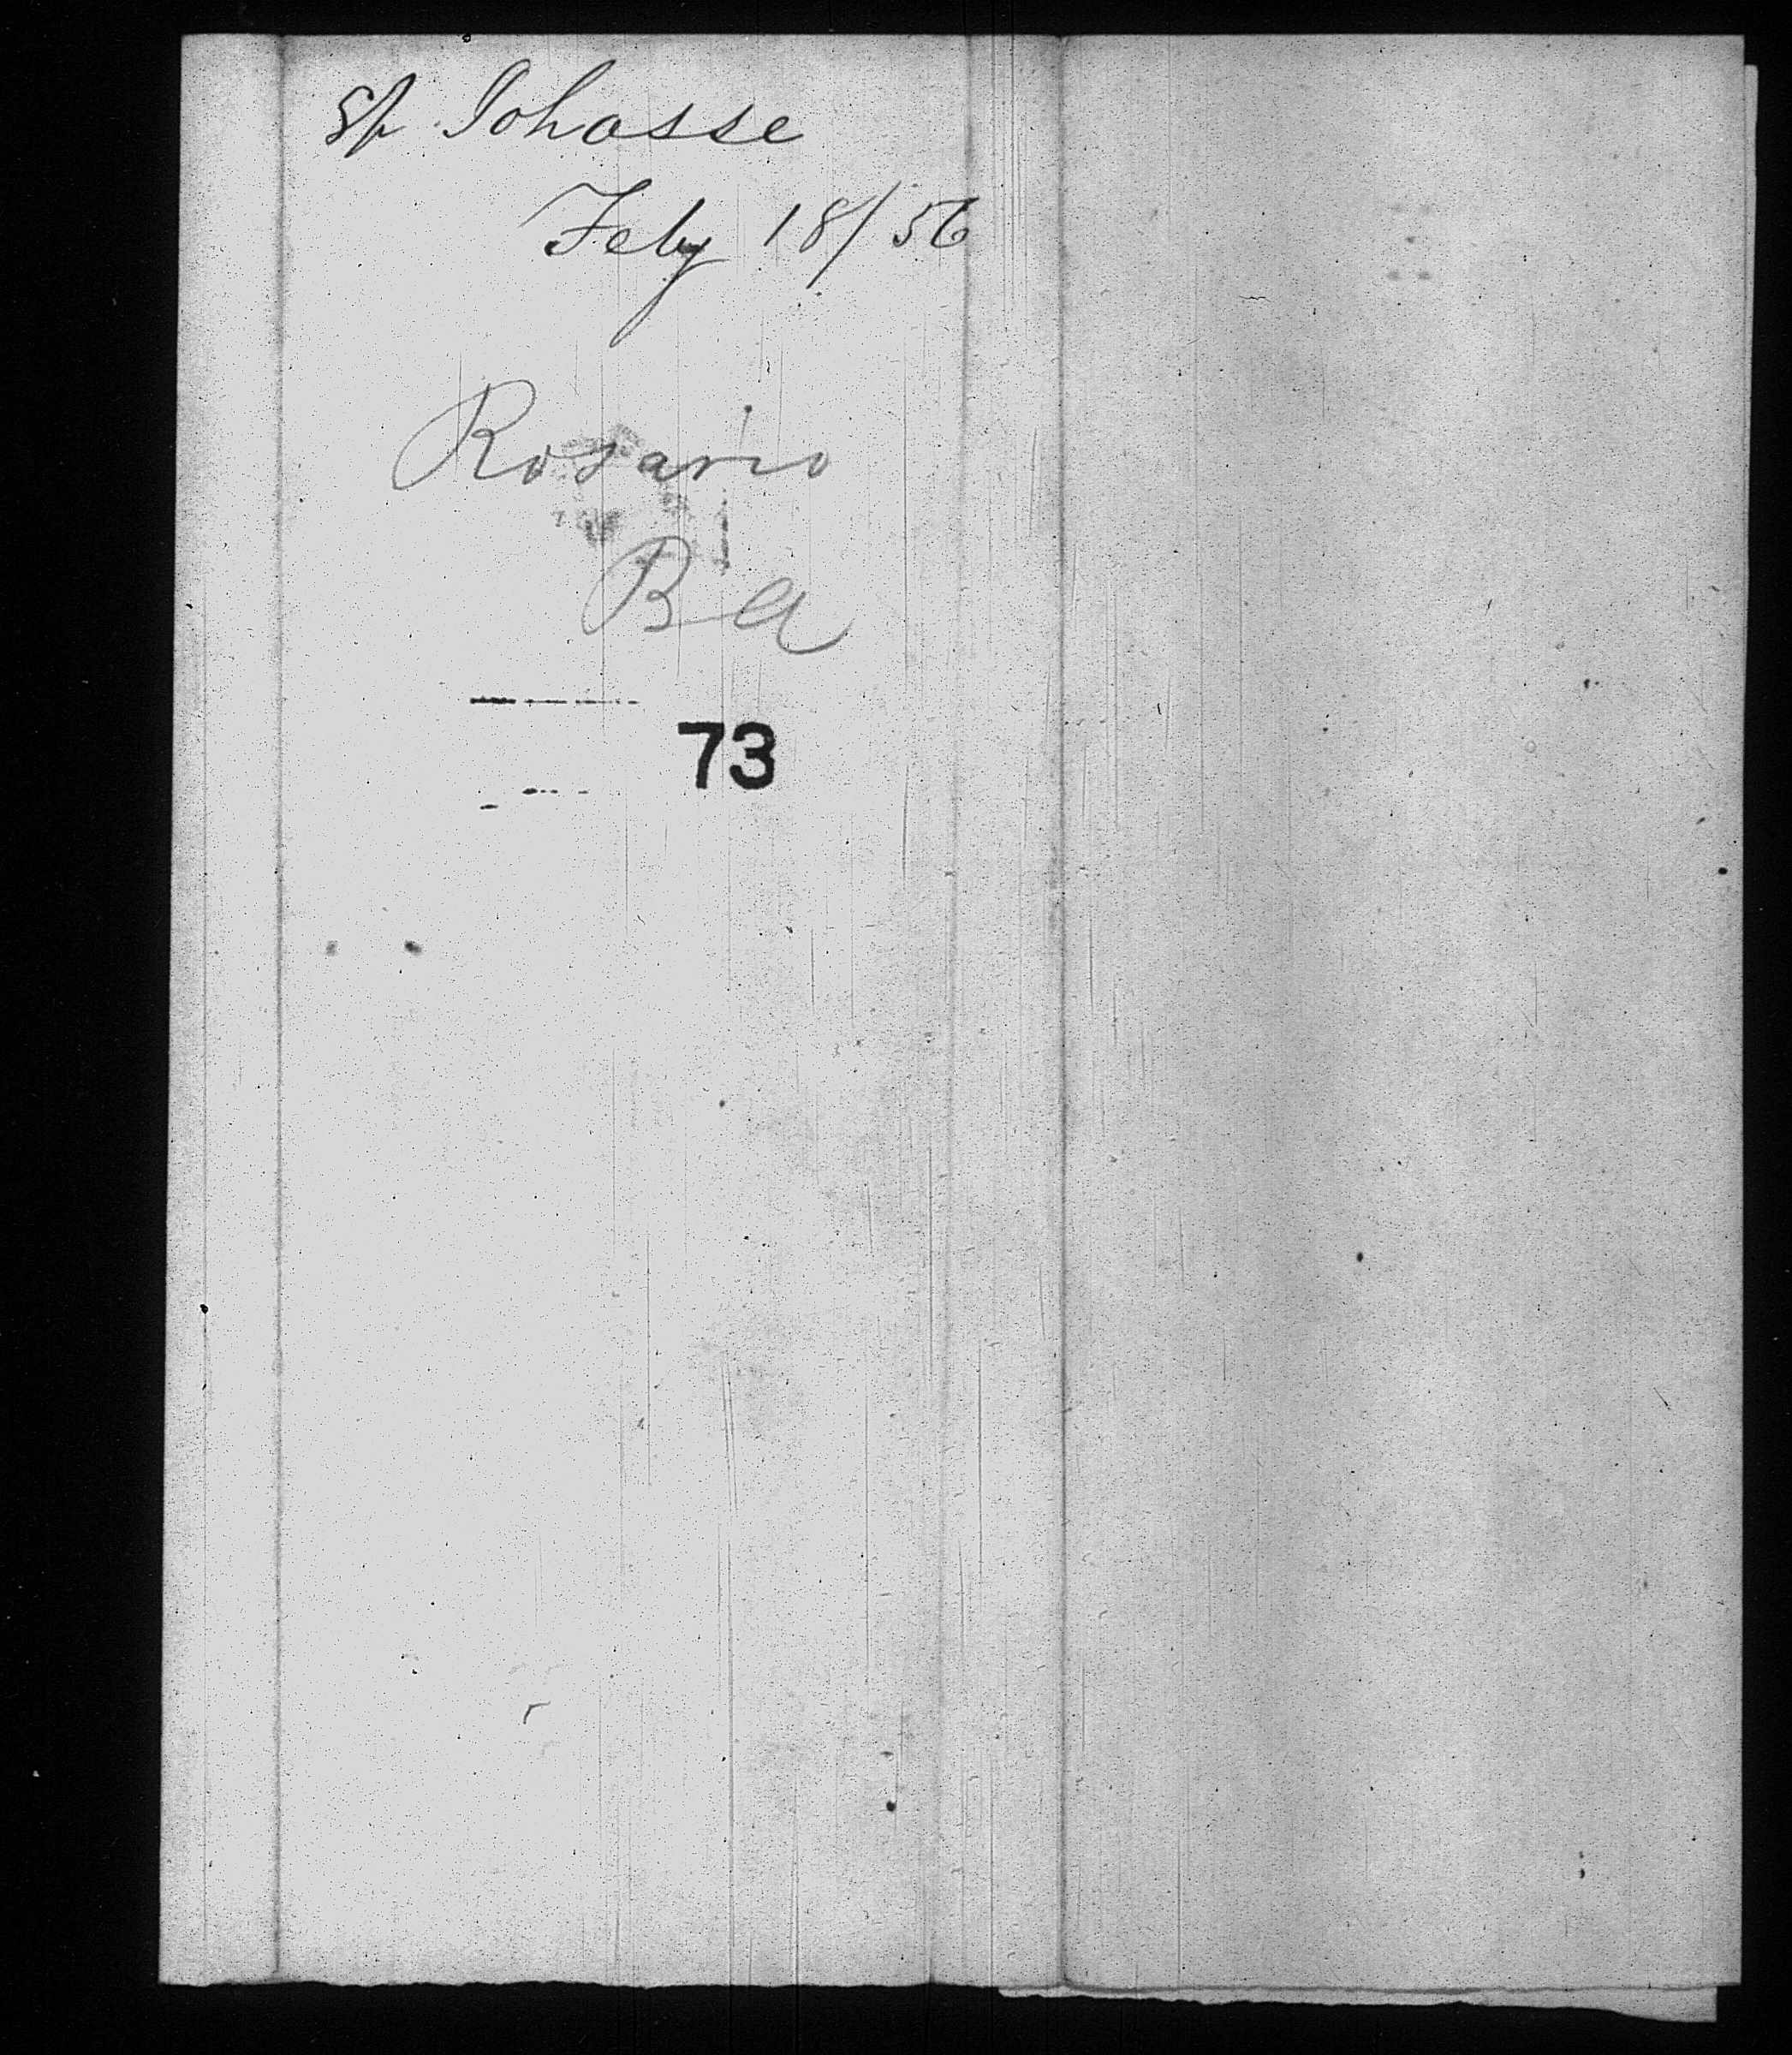 Sp Johasse
Feby 18/56
Rosario
Ba
73